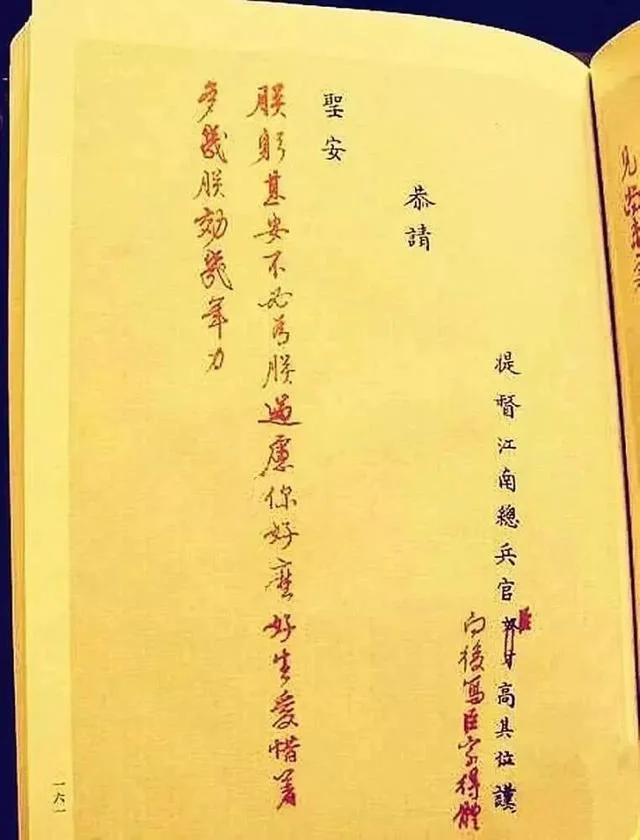 提督江南總兵官奴才高其位謹
臣
向後寫臣字得體
恭請
聖安
朕躬甚安不必為朕過慮你好麼好生愛惜着
多與朕効幾年力
一六一